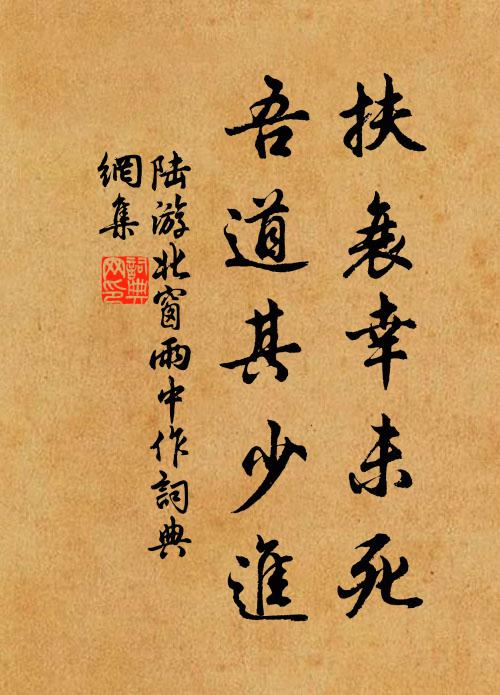 扶衰幸未死
吾道其少進
陆游北窗雨中作詞典
網集
詞典
网印